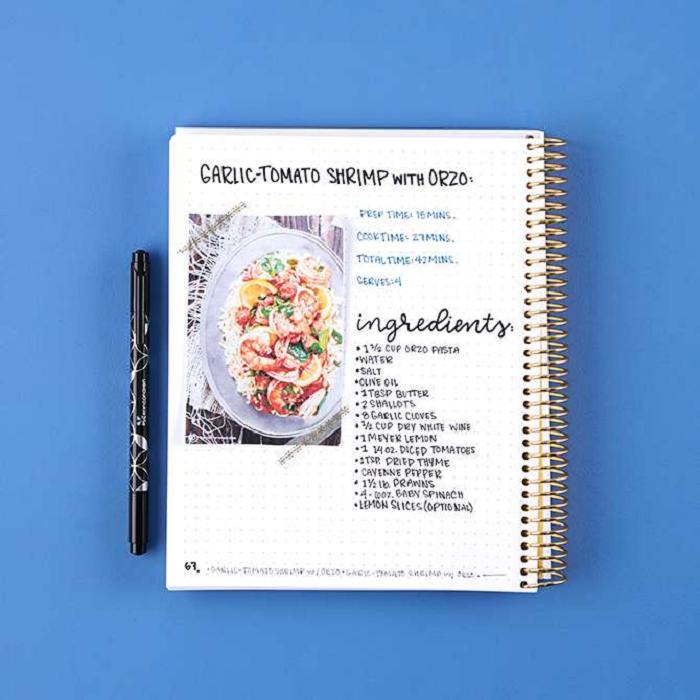 GARLIC-TOMATO SHRIMP WITH ORZO:
PREP TIME: 15 MINS.
COOK TIME: 27 MINS.
TOTAL TIME: 42 MINS.
SERVES: 4
ingredients:
• 1 ½ CUP ORZO PASTA
• WATER
• SALT
• OLIVE OIL
• 1 TBSP BUTTER
• 2 SHALLOTS
• 8 GARLIC CLOVES
• ½ CUP DRY WHITE WINE
• 1 MEYER LEMON
• 1 14 OZ. DICED TOMATOES
• 1 TSP. DRIED THYME
• CAYENNE PEPPER
• 1 ½ lb. PRAWNS
• 4-6OZ. BABY SPINACH
• LEMON SLICES (OPTIONAL)
67. • GARLIC-TOMATO SHRIMP w/ ORZO • GARLIC-TOMATO SHRIMP w/ ORZO